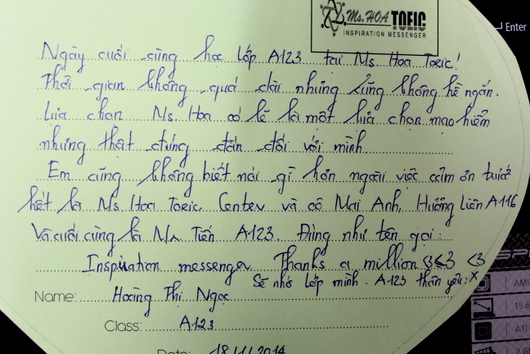 Ms. HOA TOEIC
INSPIRATION MESSENGER
Enter
Ngày cuối cùng học lớp A123 tại Ms Hoa Toeic!
Thời gian không quá dài nhưng cũng không hề ngắn.
Lựa chọn Ms Hoa có lẽ là một lựa chọn mạo hiểm
nhưng thật đúng đắn đối với mình.
Em cũng không biết nói gì hơn ngoài việc cảm ơn trước
hết là Ms Hoa Toeic Center và cô Mai Anh, Hương Liên A116
Và cuối cùng là Mr Tiến A123. Đúng như tên gọi:
Inspiration messenger. Thanks a million <3 <3 <3
Sẽ nhớ lớp mình. A123 thân yêu :x
Name: Hoàng Thị Ngọc
Class: A123
Date: 18/11/2014